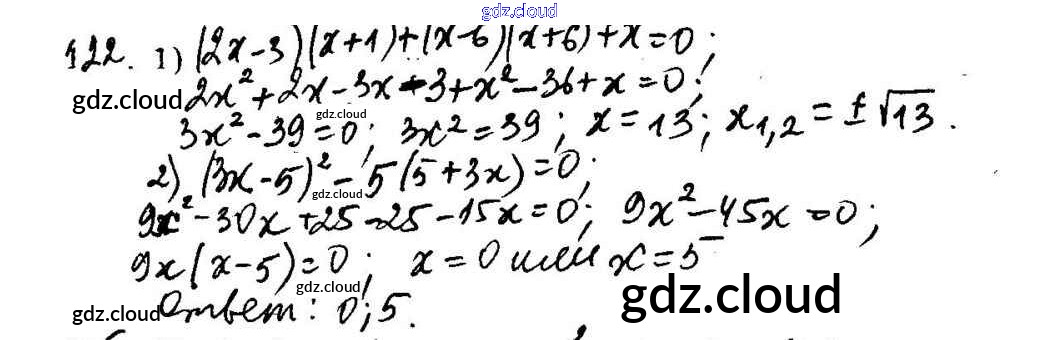 gdz.cloud
122. 1) (2x-3)(x+1)+(x-6)(x+6)+x=0;
gdz.cloud 2x²+2x-3x-3+x²-36+x=0;
gdz.cloud
3x²-39=0; 3x²=39; x=13; x₁,₂=±√13.
2) (3x-5)²-5(5+3x)=0;
gdz.cloud
9x²-30x+25-25-15x=0; 9x²-45x=0;
9x(x-5)=0; x=0 или x=5
gdz.cloud
gdz.cloud
gdz.cloud Ответ: 0;5.